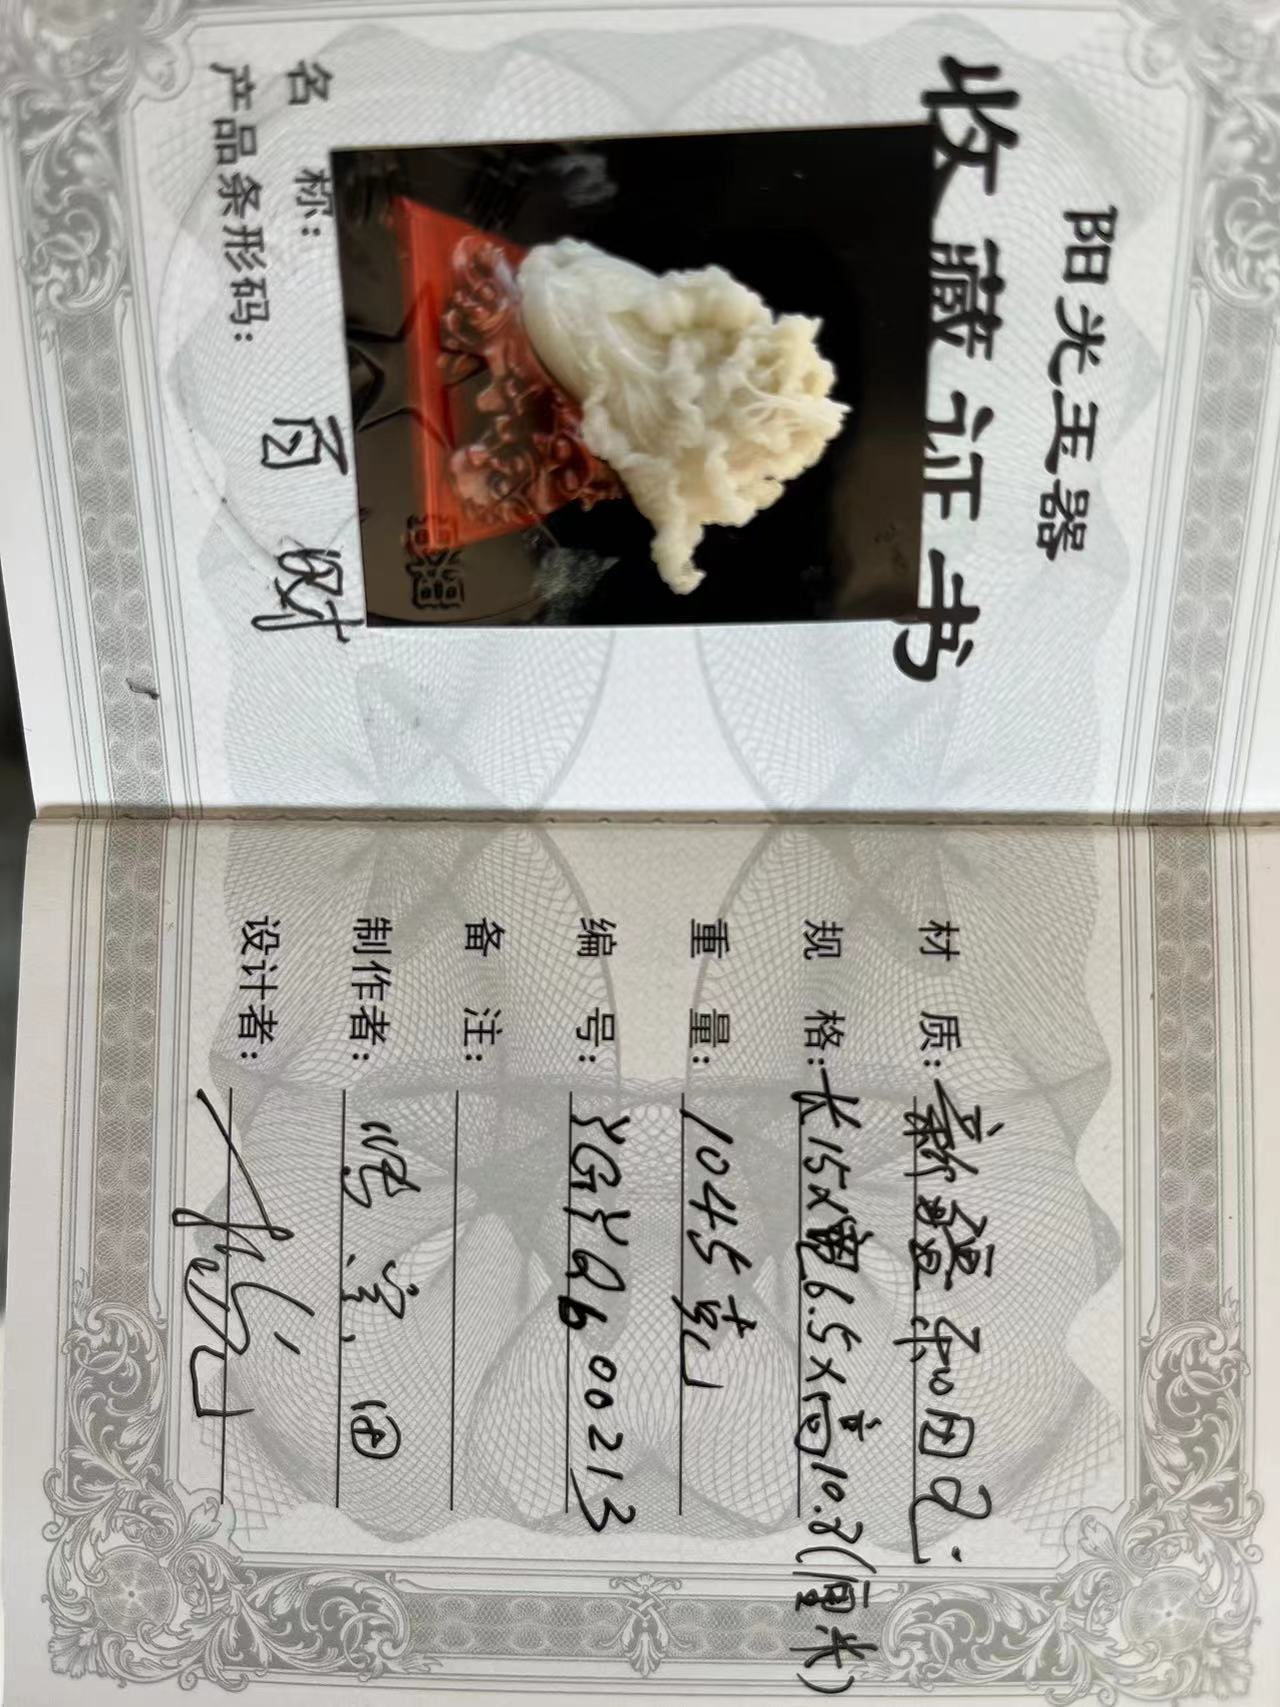 阳光玉器
收藏证书
名 称: 百财
产品条形码:
材 质: 新疆和田玉
规 格: 长15×宽6.5×高10.8(厘米)
重 量: 1045克
编 号: YGYQb00213
备 注:
制作者:
设计者: